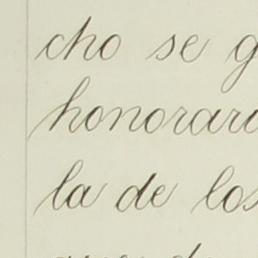 cho se g
honorari
la de los